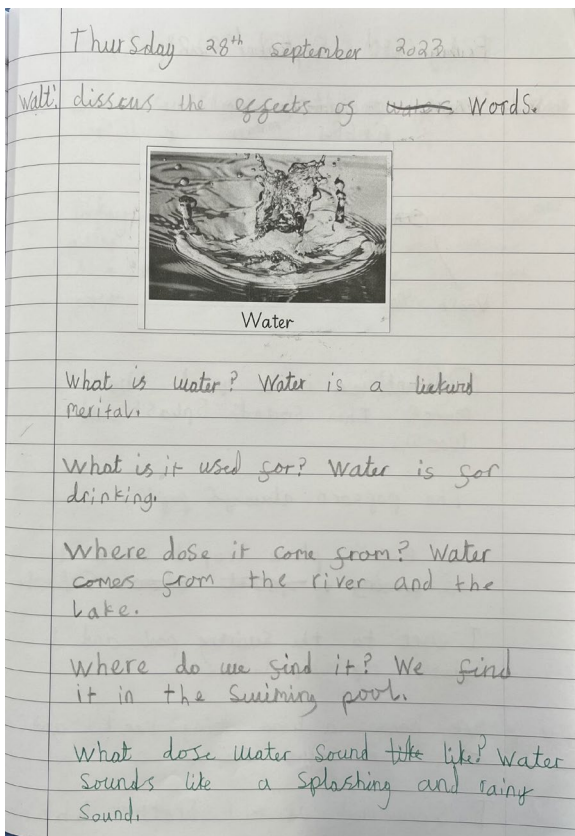 Thursday 28th September 2023
Walt: disscus the effects of waters Words.
Water
What is water? Water is a liekurd
merital.
What is it used for? Water is for
drinking.
Where dose it come from? Water
comes from the river and the
Lake.
Where do we find it? We find
it in the Swiming pool.
What dose water Sound like like? Water
Sounds like a Splashing and rainy
Sound.